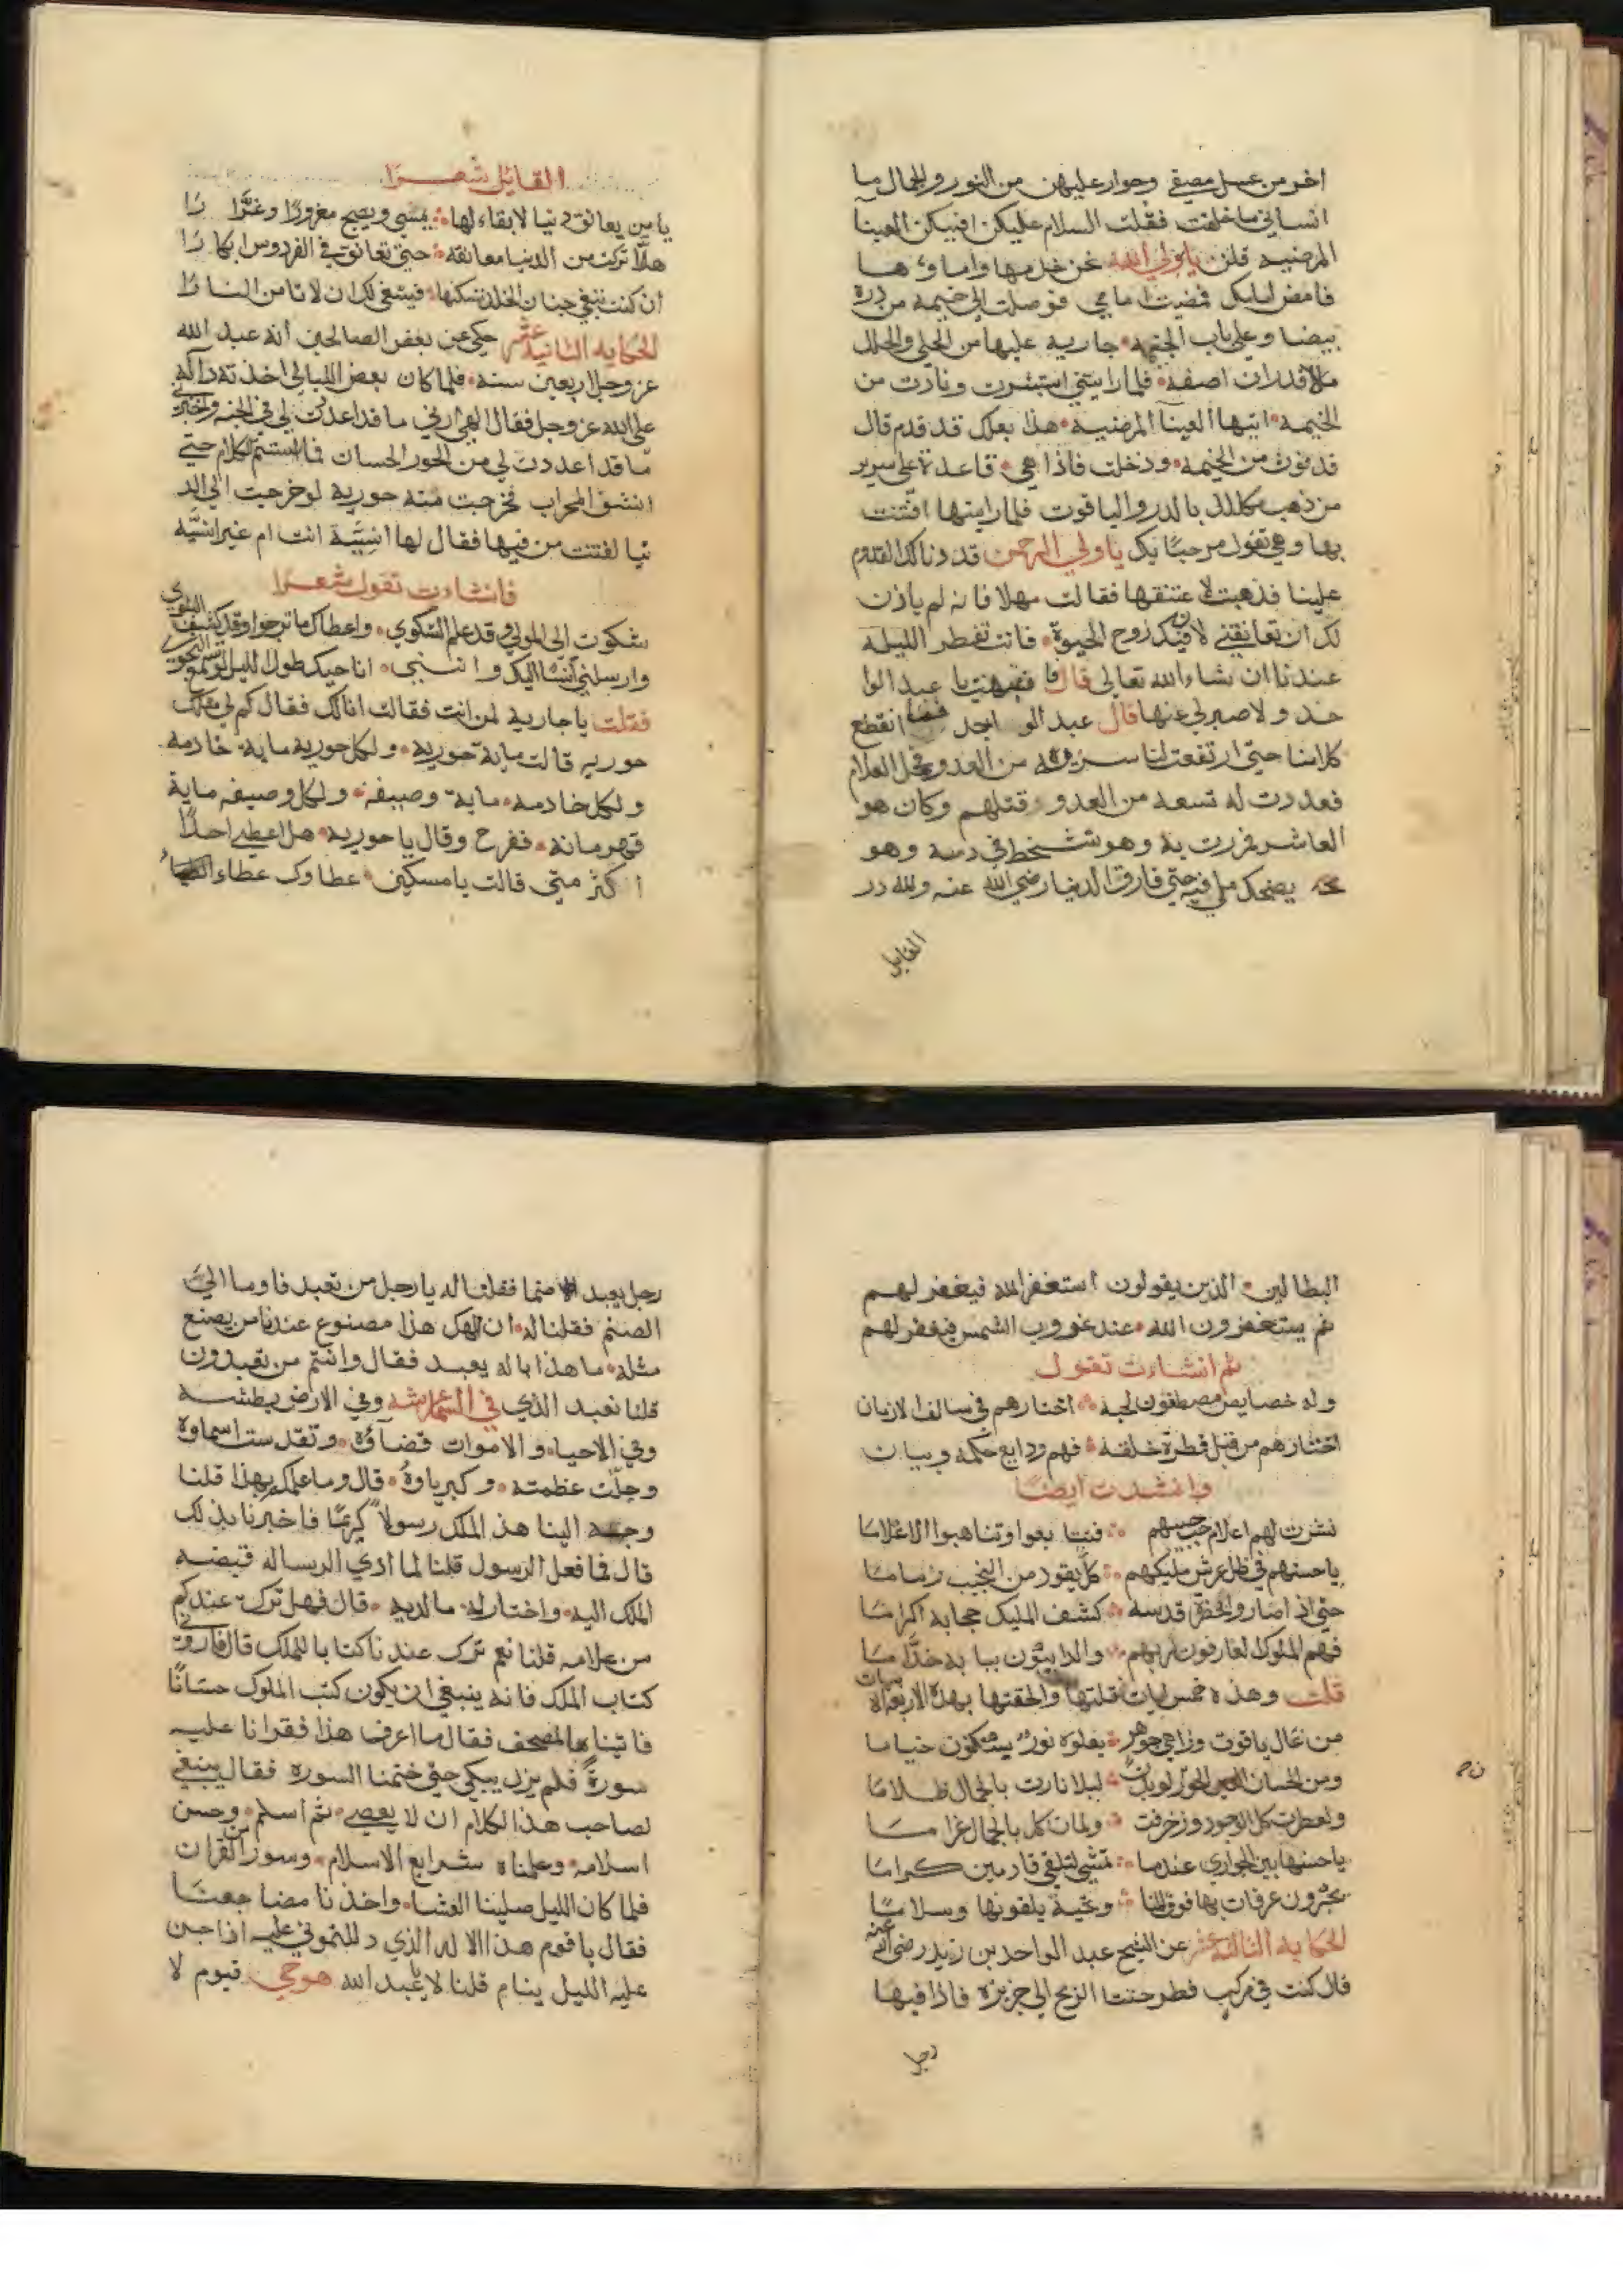 اخر من عسل مصفي وجوار عليهن من النور والجمال ما
انساني ما خلفت فقلت السلام عليكن افيكن العينا
المرضيه قلن يا ولي الله نحن خدمها واماؤها
فامض امامك فمضيت امامي فوصلت الي خيمة من درة
بيضا وعلي باب الخيمة جارية عليها من الحلي والحلل
مالا اقدر ان اصفه فلما راتني استبشرت ونادت من
الخيمة ايتها العينا المرضية هذا بعلك قد قدم قال
فدنوت من الخيمة ودخلت فاذا هي قاعدة علي سرير
من ذهب مكلل بالدر والياقوت فلما رايتها افتتنت
بها وهي تقول مرحبًا بك يا ولي الرحمن قد دنا لك القدوم
علينا فذهبت لا عتنقها فقالت مهلا فانه لم ياذن
لك ان تعانقني لان فيك روح الحيوة فانت تفطر الليلة
عندنا ان شاء الله تعالي قال فانتبهت يا عبد الوا
حد ولا صبر لي عنها قال عبد الواحد فما انقطع
كلامنا حتي ارتفعت لنا سرية من العدو فحمل الغلام
فعددت له تسعة من العدو وقتلهم وكان هو
العاشر فمررت به وهو يتشحط في دمه وهو
يضحك ملي فيه حتي فارق الدنيا رضي الله عنه ولله در
القايل
القايل شعرًا
يا من يعانق دنيا لا بقاء لها يمسي ويصبح مغرورًا وغرّارًا
هلّا تركت من الدنيا معانقة حتي تعانق في الفردوس ابكارًا
ان كنت تبغي جنان الخلد تسكنها فينبغي لك ان لا تامن النارا
الحكاية الثانية عشر حكي عن بعض الصالحين انه عبد الله
عز وجل اربعين سنة فلما كان بعض الليالي اخذته دالة
علي الله عز وجل فقال الهي ارني ما قد اعددت لي في الجنة واخبرني
ما قد اعددت لي من الحور الحسان فما استتم الكلام حتي
انشق المحراب فخرجت منه حورية لو خرجت الي الد
نيا لفتنت من فيها فقال لها انسيّة انت ام غير انسيّة
فانشات تقول شعرًا
شكوت الي المولي وقد علم الشكوي واعطاك ما ترجو وقد كشف البلوي
وارسلني انسًا اليك وانني اناجيك طول الليل لو تسمع النجوي
فقلت يا جارية لمن انت فقالت انا لك فقال كم لي مثلك
حورية قالت ماية حورية ولكل حورية ماية خادمه
ولكل خادمه ماية وصيفة ولكل وصيفه ماية
قهرمانة ففرح وقال يا حورية هل اعطي احدًا
اكثر مني قالت يا مسكين عطاوك عطاء
البطالين الذين يقولون استغفر الله فيغفر لهم
ثم يستغفرون الله عند غروب الشمس فيغفر لهم
ثم انشات تقول
وله خصايص مصطفون لحبه اختارهم في سالف الازمان
اختارهم من قبل فطرة خلقه فهم ودايع حكمة وبيان
وانشدت ايضًا
نشرت لهم اعلام حبيبهم فتتابعوا وتناهبوا الاعلاما
يا حسنهم في ظل عرش مليكهم كلّ يقود من النجيب زماما
حتي اذا صاروا لحضرة قدسه كشف المليك حجابه اكراما
فهم الملوك العارفون لربهم والدايبون ببابه خدّاما
قلت وهذه خمس ابيات قلتها والحقتها بهذه الاربعة الابيات
من غال ياقوت وزاهي جوهر يعلوه نور يسكنون خياما
ومن الحسان الحور لو يدن ليلا نارت بالجمال ظلاما
ولعطرت كل الوجود وزخرفت ولمات كل بالجمال غراما
يا حسنها بين الجواري عندما تمشي لتلقي قادمين كراما
يجزون غرفات بها فوق المنا وتحية يلقونها وسلاما
الحكاية الثالثة عشر عن الشيخ عبد الواحد بن زيد رضي الله عنه
قال كنت في مركب فطرحتنا الريح الي جزيرة فاذا فيها
رجل
رجل يعبد صنما فقلنا له يا رجل من تعبد فاوما الي
الصنم فقلنا له ان الهك هذا مصنوع عندنا من يصنع
مثله ما هذا باله يعبد فقال وانتم من تعبدون
قلنا نعبد الذي في السما عرشه وفي الارض بطشه
وفي الاحياء والاموات قضاؤه وتقدست اسماوه
وجلّت عظمته وكبرياوهُ قال وما علمكم بهذا قلنا
وجه الينا هذ الملك رسولاً كريمًا فاخبرنا بذلك
قال فما فعل الرسول قلنا لما ادي الرساله قبضه
الملك اليه واختار له ما لديه قال فهل ترك عندكم
من علامه قلنا نعم ترك عندنا كتابا للملك قال فاروني
كتاب الملك فانه ينبغي ان يكون كتب الملوك حسانًا
فاتيناه بالمصحف فقال ما اعرف هذا فقرانا عليه
سورةً فلم يزل يبكي حتي ختمنا السورة فقال ينبغي
لصاحب هذا الكلام ان لا يعصي ثم اسلم وحسن
اسلامه وعلمناه شرايع الاسلام وسور من القران
فلما كان الليل صلينا العشا واخذنا مضاجعنا
فقال يا قوم هذا الاله الذي دللتموني عليه اذا جن
عليه الليل ينام قلنا لا يا عبد الله هو حي قيوم لا